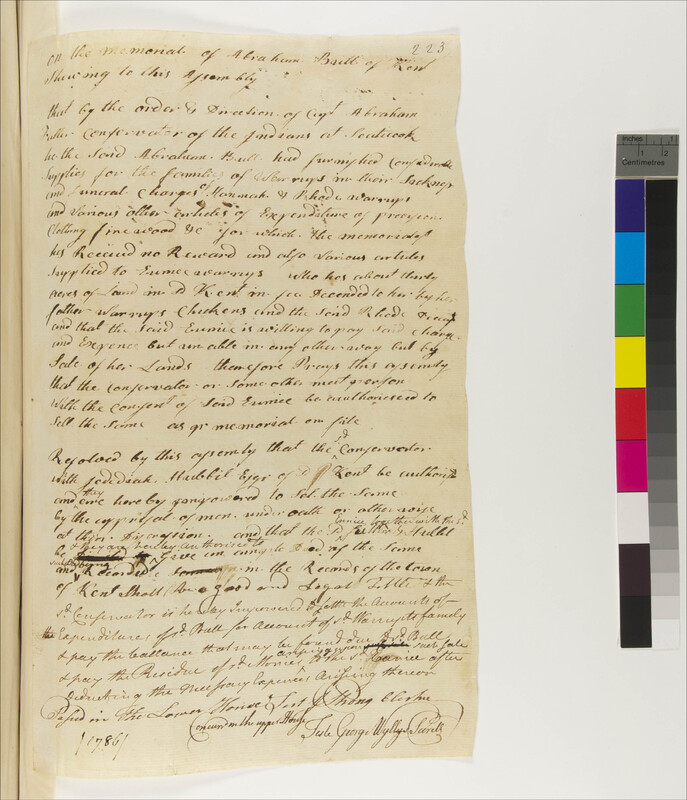 223
On the memorial of Abraham Bull of Kent
Shewing to this Assembly
that by the order & Direction of Capt Abraham
Fuller Conservator of the Indians at Scatecook
he the Said Abraham Bull had furnished Considerable
Supplies for the families of Warrups in their Sickness
and funeral Charges of & Rhode Warrups
and Various other articles of Expenditure of provision
Clothing fire wood &c for which the memorialist
has Received no Reward and also Various articles
Supplied to Eunice Warrups who has about thirty
acres of Land in Sd Kent in fee Decended to her by her
father Warrups Chickens and the Said Rhode
and that the Said Eunice is willing to pay Said Charge
and Expence but unable in any other way but by
Sale of her Lands therefore Prays this assembly
that the Conservator or Some other meet person
with the Consent of Said Eunice be authoriesed to
Sell the Same as pr memorial on file
Resolved by this assembly that the sd Conservator
with Jedediah Hubbil Esqr of Sd Kent be authorised
and they are hereby impowered to Sel the Same
by the apprisal of men under oath or otherwise
at their Discression and that the Sd Fuller & Hubbil
Eunice together with the sd
be & they are hereby authorised to Give an ample Deed of the Same
and Recorded in the Records of the town
of Kent Shall be a good and Legal Title & the
sd Conservator is hereby Impowered to settle the Accounts of
the Expenditures of sd Bull for Account of sd Warrups family
& pay the ballance that may be found due to sd Bull
such sale
& pay the Residue of sd Monies to the sd Eunice after
deducting the Necessary Expences Arising thereon
Passed in the Lower House Test Strong Clerk
Concurd in the upper House
Teste George Wyllys Secretr
[1786]
Inches
1
2
Centimetres